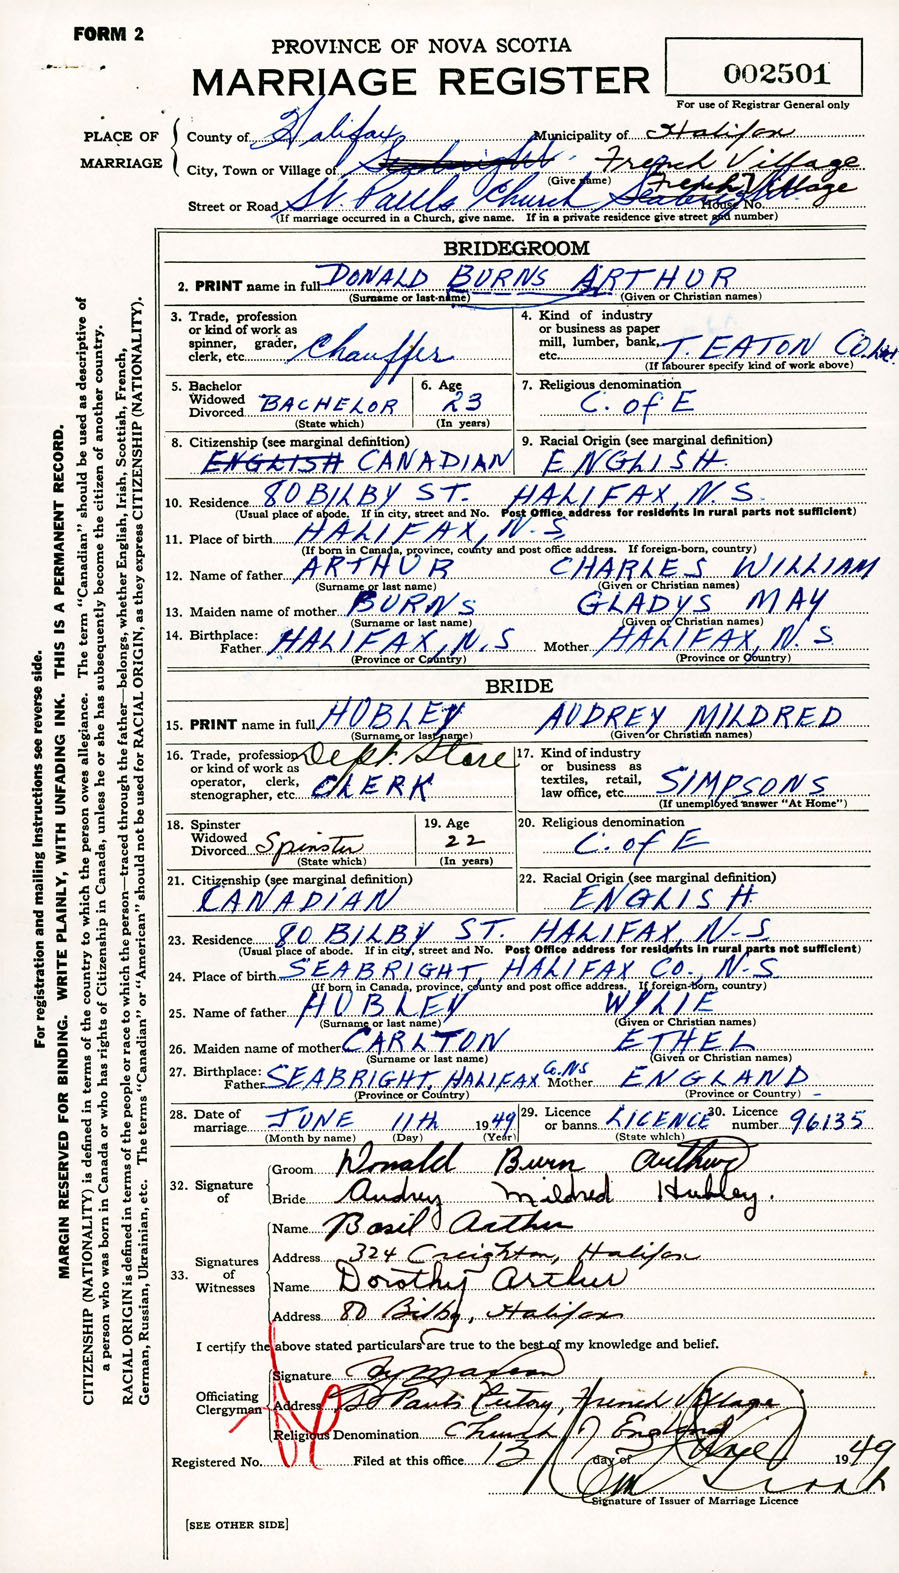 FORM 2
PROVINCE OF NOVA SCOTIA
MARRIAGE REGISTER
002501
For use of Registrar General only
PLACE OF MARRIAGE
County of Halifax Municipality of Halifax
City, Town or Village of Seabright French Village
(Give name) French Village
Street or Road St. Pauls Church Seabright House No.
(If marriage occurred in a Church, give name. If in a private residence give street and number)
BRIDEGROOM
2. PRINT name in full DONALD BURNS ARTHUR
(Surname or last-name) (Given or Christian names)
3. Trade, profession or kind of work as spinner, grader, clerk, etc. Chauffer
4. Kind of industry or business as paper mill, lumber, bank, etc. T. EATON CO. Ltd.
(If labourer specify kind of work above)
5. Bachelor Widowed Divorced BACHELOR
(State which)
6. Age 23
(In years)
7. Religious denomination C. of E
8. Citizenship (see marginal definition) ENGLISH CANADIAN
9. Racial Origin (see marginal definition) ENGLISH.
10. Residence 80 BILBY ST. HALIFAX, N.S.
(Usual place of abode. If in city, street and No. Post Office address for residents in rural parts not sufficient)
11. Place of birth HALIFAX, N.S
(If born in Canada, province, county and post office address. If foreign-born, country)
12. Name of father ARTHUR CHARLES WILLIAM
(Surname or last name) (Given or Christian names)
13. Maiden name of mother BURNS GLADYS MAY
(Surname or last name) (Given or Christian names)
14. Birthplace: Father HALIFAX, N.S Mother HALIFAX, N.S
(Province or Country) (Province or Country)
BRIDE
15. PRINT name in full HUBLEY AUDREY MILDRED
(Surname or last name) (Given or Christian names)
16. Trade, profession or kind of work as operator, clerk, stenographer, etc. Dept. Store CLERK
17. Kind of industry or business as textiles, retail, law office, etc. SIMPSONS
(If unemployed answer "At Home")
18. Spinster Widowed Divorced Spinster
(State which)
19. Age 22
(In years)
20. Religious denomination C. of E
21. Citizenship (see marginal definition) CANADIAN
22. Racial Origin (see marginal definition) ENGLISH
23. Residence 80 BILBY ST. HALIFAX, N-S
(Usual place of abode. If in city, street and No. Post Office address for residents in rural parts not sufficient)
24. Place of birth SEABRIGHT HALIFAX CO., N-S
(If born in Canada, province, county and post office address. If foreign-born, country)
25. Name of father HUBLEY WYLIE
(Surname or last name) (Given or Christian names)
26. Maiden name of mother CARLTON ETHEL
(Surname or last name) (Given or Christian names)
27. Birthplace: Father SEABRIGHT, HALIFAX Co. NS Mother ENGLAND
(Province or Country) (Province or Country)
28. Date of marriage JUNE 11th 1949 29. Licence or banns LICENCE 30. Licence number 96135
(Month by name) (Day) (Year) (State which)
32. Signature of
Groom Donald Burn Arthur
Bride Audrey Mildred Hubley.
33. Signatures of Witnesses
Name Basil Arthur
Address 324 Creighton, Halifax
Name Dorothy Arthur
Address 80 Bilby, Halifax
I certify the above stated particulars are true to the best of my knowledge and belief.
Officiating Clergyman
Signature
Address St Pauls Rectory, French Village
Religious Denomination Church of England
Registered No. Filed at this office 13 day of June 1949
Signature of Issuer of Marriage Licence
[SEE OTHER SIDE]
For registration and mailing instructions see reverse side.
MARGIN RESERVED FOR BINDING. WRITE PLAINLY, WITH UNFADING INK. THIS IS A PERMANENT RECORD.
CITIZENSHIP (NATIONALITY) is defined in terms of the country to which the person owes allegiance. The term "Canadian" should be used as descriptive of
a person who was born in Canada or who has rights of Citizenship in Canada, unless he or she has subsequently become the citizen of another country.
RACIAL ORIGIN is defined in terms of the people or race to which the person—traced through the father—belongs, whether English, Irish, Scottish, French,
German, Russian, Ukrainian, etc. The terms "Canadian" or "American" should not be used for RACIAL ORIGIN, as they express CITIZENSHIP (NATIONALITY).